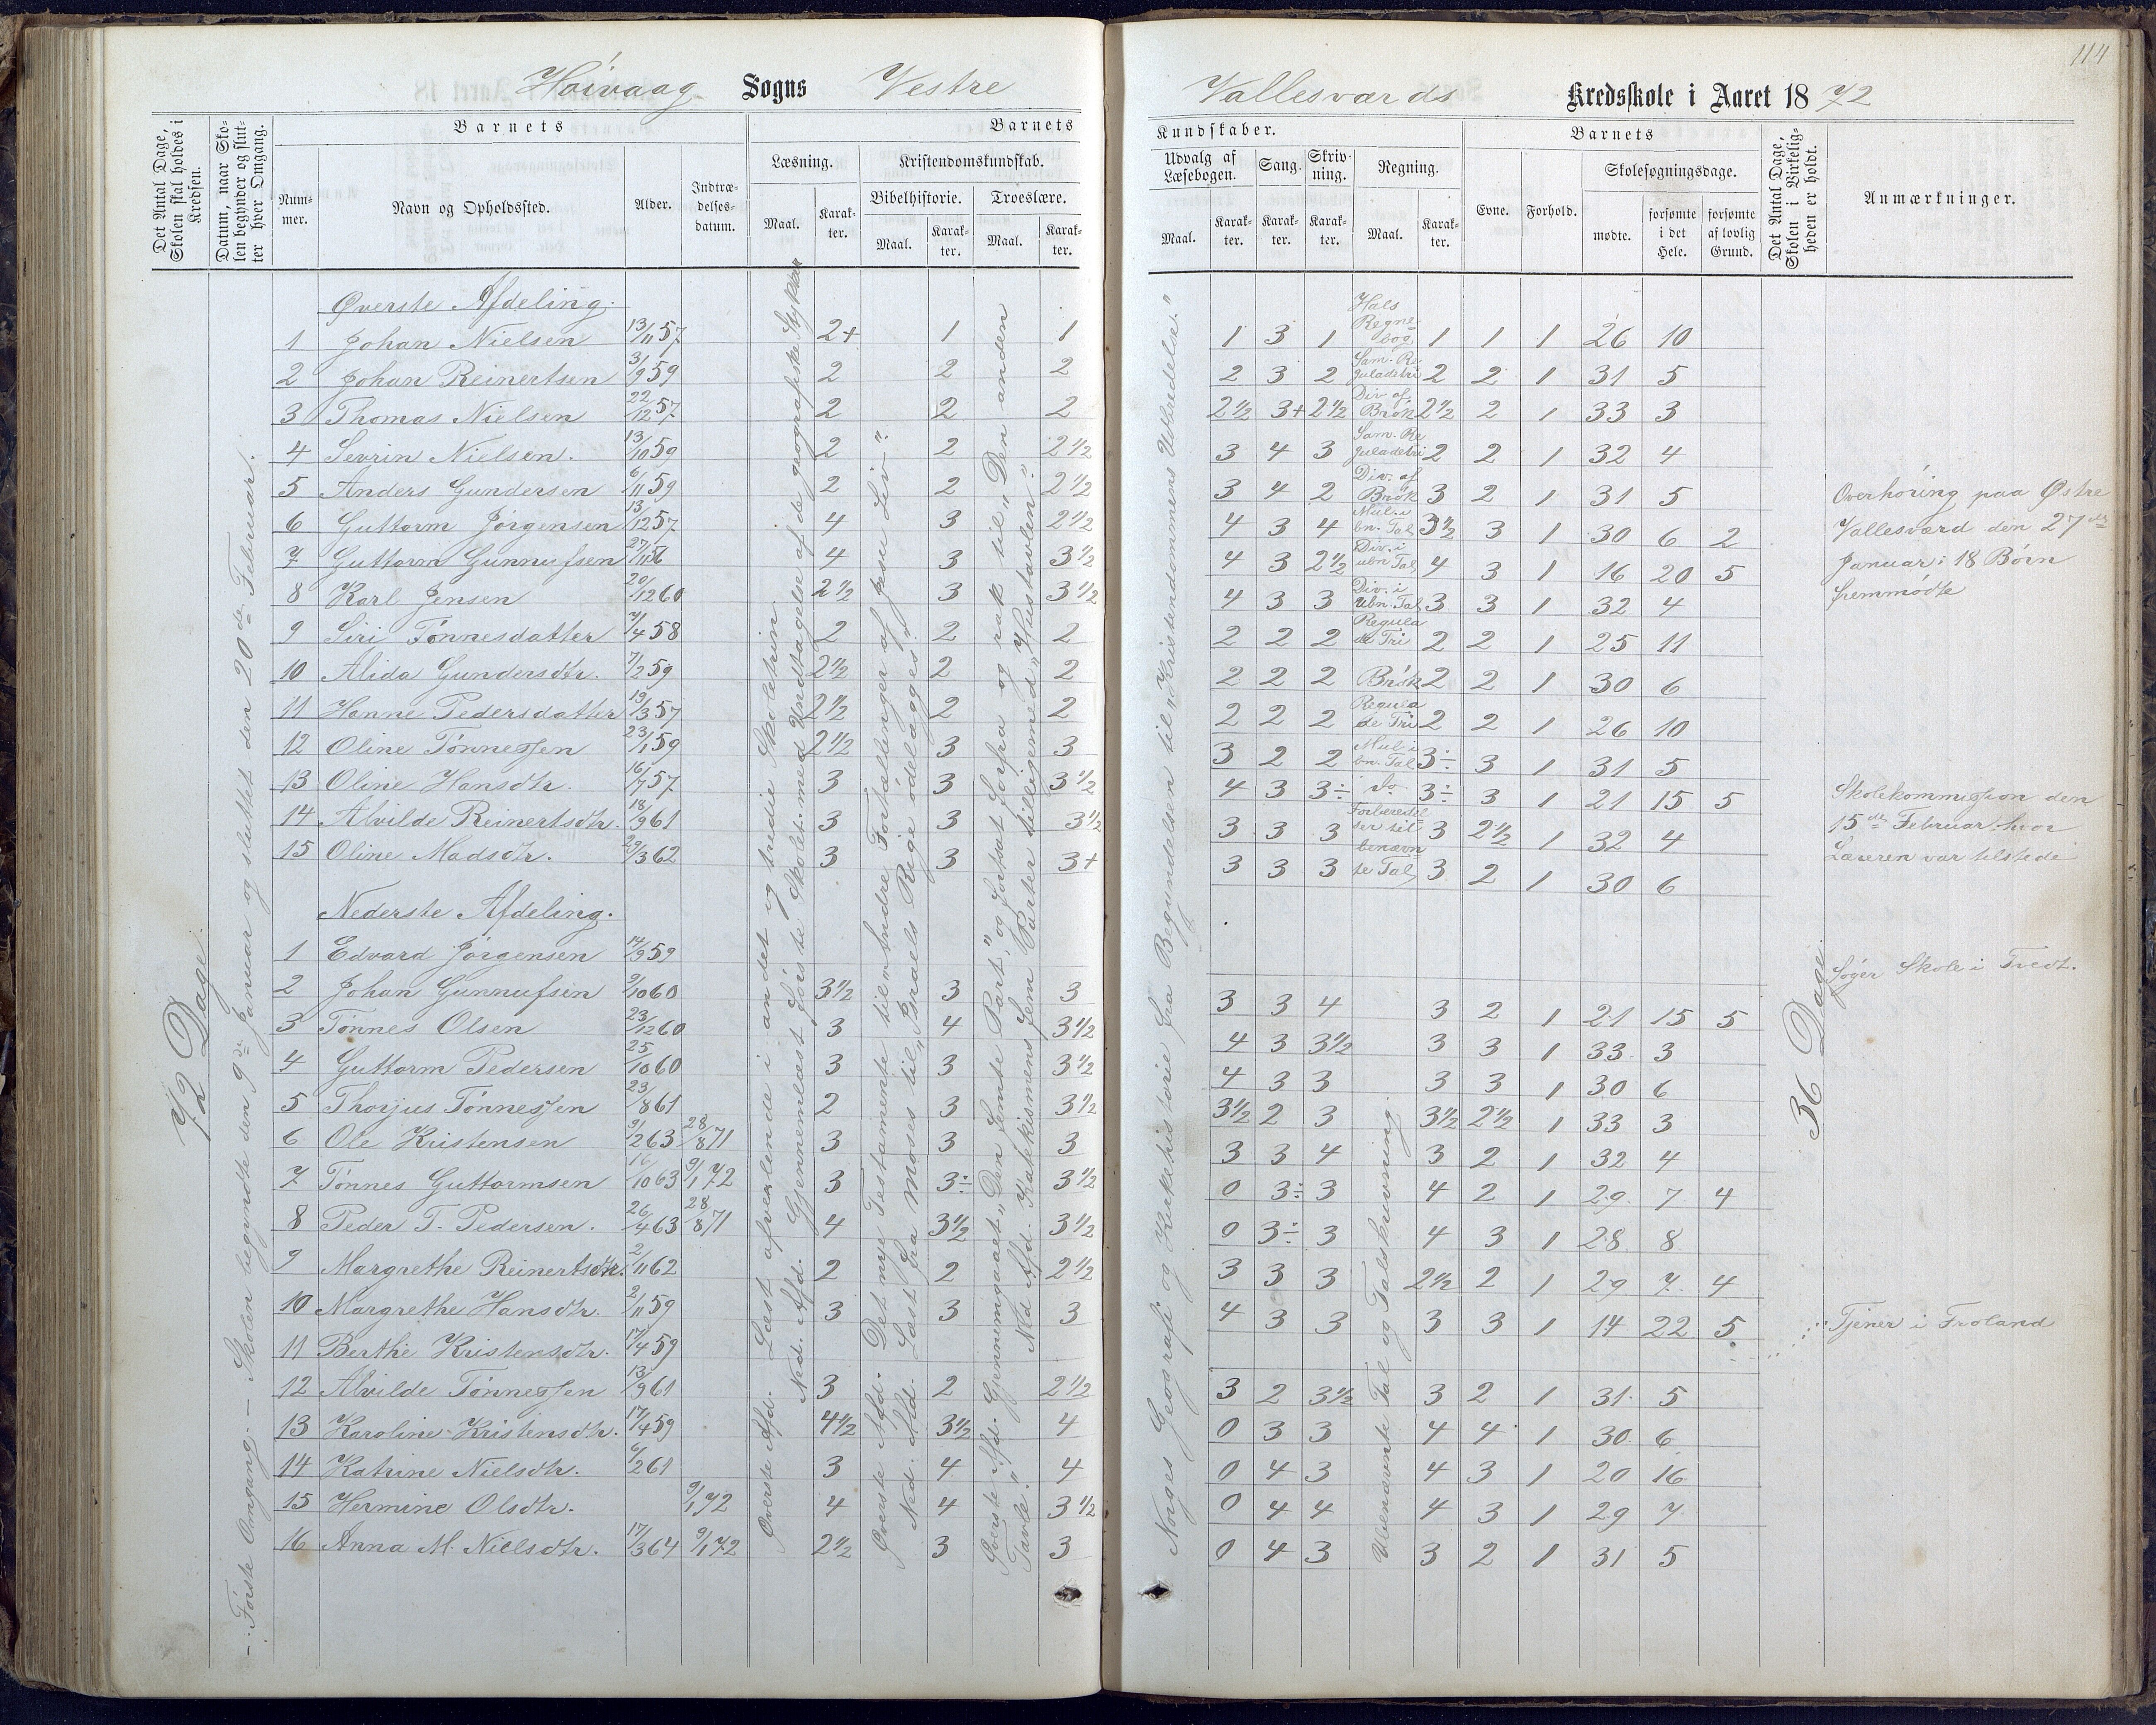 114
Høivaag Sogns Vestre Vallesværds Kredsskole i Aaret 1872
Det Antal Dage, Skolen skal holdes i Kredsen.
Datum, naar Skolen begynder og slutter hver Omgang.
Barnets
Nummer.
Navn og Opholdssted.
Alder.
Indtrædelsesdatum.
Barnets Kundskaber.
Læsning.
Maal.
Karakter.
Kristendomskundskab.
Bibelhistorie.
Maal.
Karakter.
Troeslære.
Maal.
Karakter.
Udvalg af Læsebogen.
Maal.
Karakter.
Sang.
Karakter.
Skrivning.
Karakter.
Regning.
Maal.
Karakter.
Barnets
Evne.
Forhold.
Skolesøgningsdage.
mødte.
forsømte i det Hele.
forsømte af lovlig Grund.
Det Antal Dage, Skolen i Virkeligheden er holdt.
Anmærkninger.
72 Dage.
Første Omgang. – Skolen begyndte den 9de Januar og sluttet den 20de Februar.
Øverste Afd. Læst afvexlende i andet og tredie Skoletrin.
Ned. Afd. Gjennemlæst første Skolet. med Undtagelse af de geografiske Stykker
Øverste Afd. Det nye Testamente til "Andre Fortællinger af Jesu Liv".
Ned. Afd. Læst fra Moses til "Israels Rige ødelægges".
Øverste Afd. Gjennemgaaet "Den femte Part", og fortsat forfra og rak til "Den anden Tavle".
Ned. Afd. Katekismens fem Parter tilligemed "Hustavlen".
Norges Geografi og Kirkehistorie fra Begyndelsen til "Kristendommens Udbredelse."
Øverste Afdeling.
1 Johan Nielsen 13/11 57 2+ 1 1 1 3 1 Hals Regnebog 1 1 1 26 10
2 Johan Reinertsen 3/9 59 2 2 2 2 3 2 Sam. Reguladetri 2 2 1 31 5
3 Thomas Nielsen 22/12 57 2 2 2 2½ 3+ 2½ Div. af Brøk 2½ 2 1 33 3
4 Sevrin Nielsen. 13/10 59 2 2 2½ 3 4 3 Sam. Reguladetri 2 2 1 32 4
5 Anders Gundersen 6/11 59 2 2 2½ 3 4 2 Div. af Brøk 3 2 1 31 5
6 Guttorm Jørgensen 13/12 57 4 3 2½ 4 3 4 Mul. i bn. Tal 3½ 3 1 30 6 2
7 Guttorm Gunnufsen 27/11 56 4 3 3½ 4 3 2½ Div. i ubn Tal 4 3 1 16 20 5
8 Karl Jensen 20/12 60 2½ 3 3½ 4 3 3 Div. i Ubn. Tal 3 3 1 32 4
9 Siri Tønnesdatter 7/4 58 2 2 2 2 2 2 Regula de Tri 2 2 1 25 11
10 Alida Gundersdtr. 7/2 59 2½ 2 2 2 2 2 Brøk 2 2 1 30 6
11 Hanne Pedersdatter 19/3 57 2½ 2 2 2 2 2 Regula de Tri 2 2 1 26 10
12 Oline Tønnessen 23/1 59 2½ 3 3 3 2 2 Mul i bn. Tal 3÷ 3 1 31 5
13 Oline Hansdtr. 16/7 57 3 3 3½ 4 3 3÷ do 3÷ 3 1 21 15 5
14 Alvilde Reinertsdtr. 18/9 61 3 3 3½ 3 3 3 Forberedelser til 3 2½ 1 32 4
15 Oline Madsdtr. 29/3 62 3 3 3+ 3 3 3 benævnte Tal 3 2 1 30 6
Overhøring paa Østre
Vallesværd den 27de
Januar: 18 Børn
fremmødte
Skolekommission den
15de Februar, hvor
Læreren var tilstede
Nederste Afdeling.
1 Edvard Jørgensen 14/9 59 Søger Skole i Tvedt.
2 Johan Gunnufsen 9/10 60 3½ 3 3 3 3 4 3 2 1 21 15 5
3 Tønnes Olsen 23/12 60 3 4 3½ 4 3 3½ 3 3 1 33 3
4 Guttorm Pedersen 25/10 60 3 3 3½ 4 3 3 3 3 1 30 6
5 Thorjus Tønnessen 23/8 61 2 3 3½ 3½ 2 3 3½ 2½ 1 33 3
6 Ole Kristensen 9/2 63 28/8 71 3 3 3 3 3 4 3 2 1 32 4
7 Tønnes Guttormsen 16/10 63 9/1 72 3 3÷ 3½ 0 3÷ 3 4 2 1 29 7 4
8 Peder T. Pedersen. 26/4 63 28/8 71 4 3½ 3½ 0 3÷ 3 4 3 1 28 8
9 Margrethe Reinertsdtr. 2/11 62 2 2 2½ 3 3 3 2½ 2 1 29 7 4
10 Margrethe Hansdtr. 2/11 59 3 3 3 4 3 3 3 3 1 14 22 5
11 Berthe Kristensdtr. 17/4 59 Tjener i Froland
12 Alvilde Tønnessen 13/9 61 3 2 2½ 3 2 3½ 3 2 1 31 5
13 Karoline Kristensdtr. 17/4 59 4½ 3½ 4 0 3 3 4 4 1 30 6
14 Katrine Nielsdtr. 6/2 61 3 4 4 0 4 3 4 3 1 20 16
15 Hermine Olsdtr. 9/1 72 4 4 3½ 0 4 4 4 3 1 29 7
16 Anna M. Nielsdtr. 17/3 64 9/1 72 2½ 3 3 0 4 3 3 2 1 31 5
Ubenævnte Tal og Talskrivning.
36 Dage.